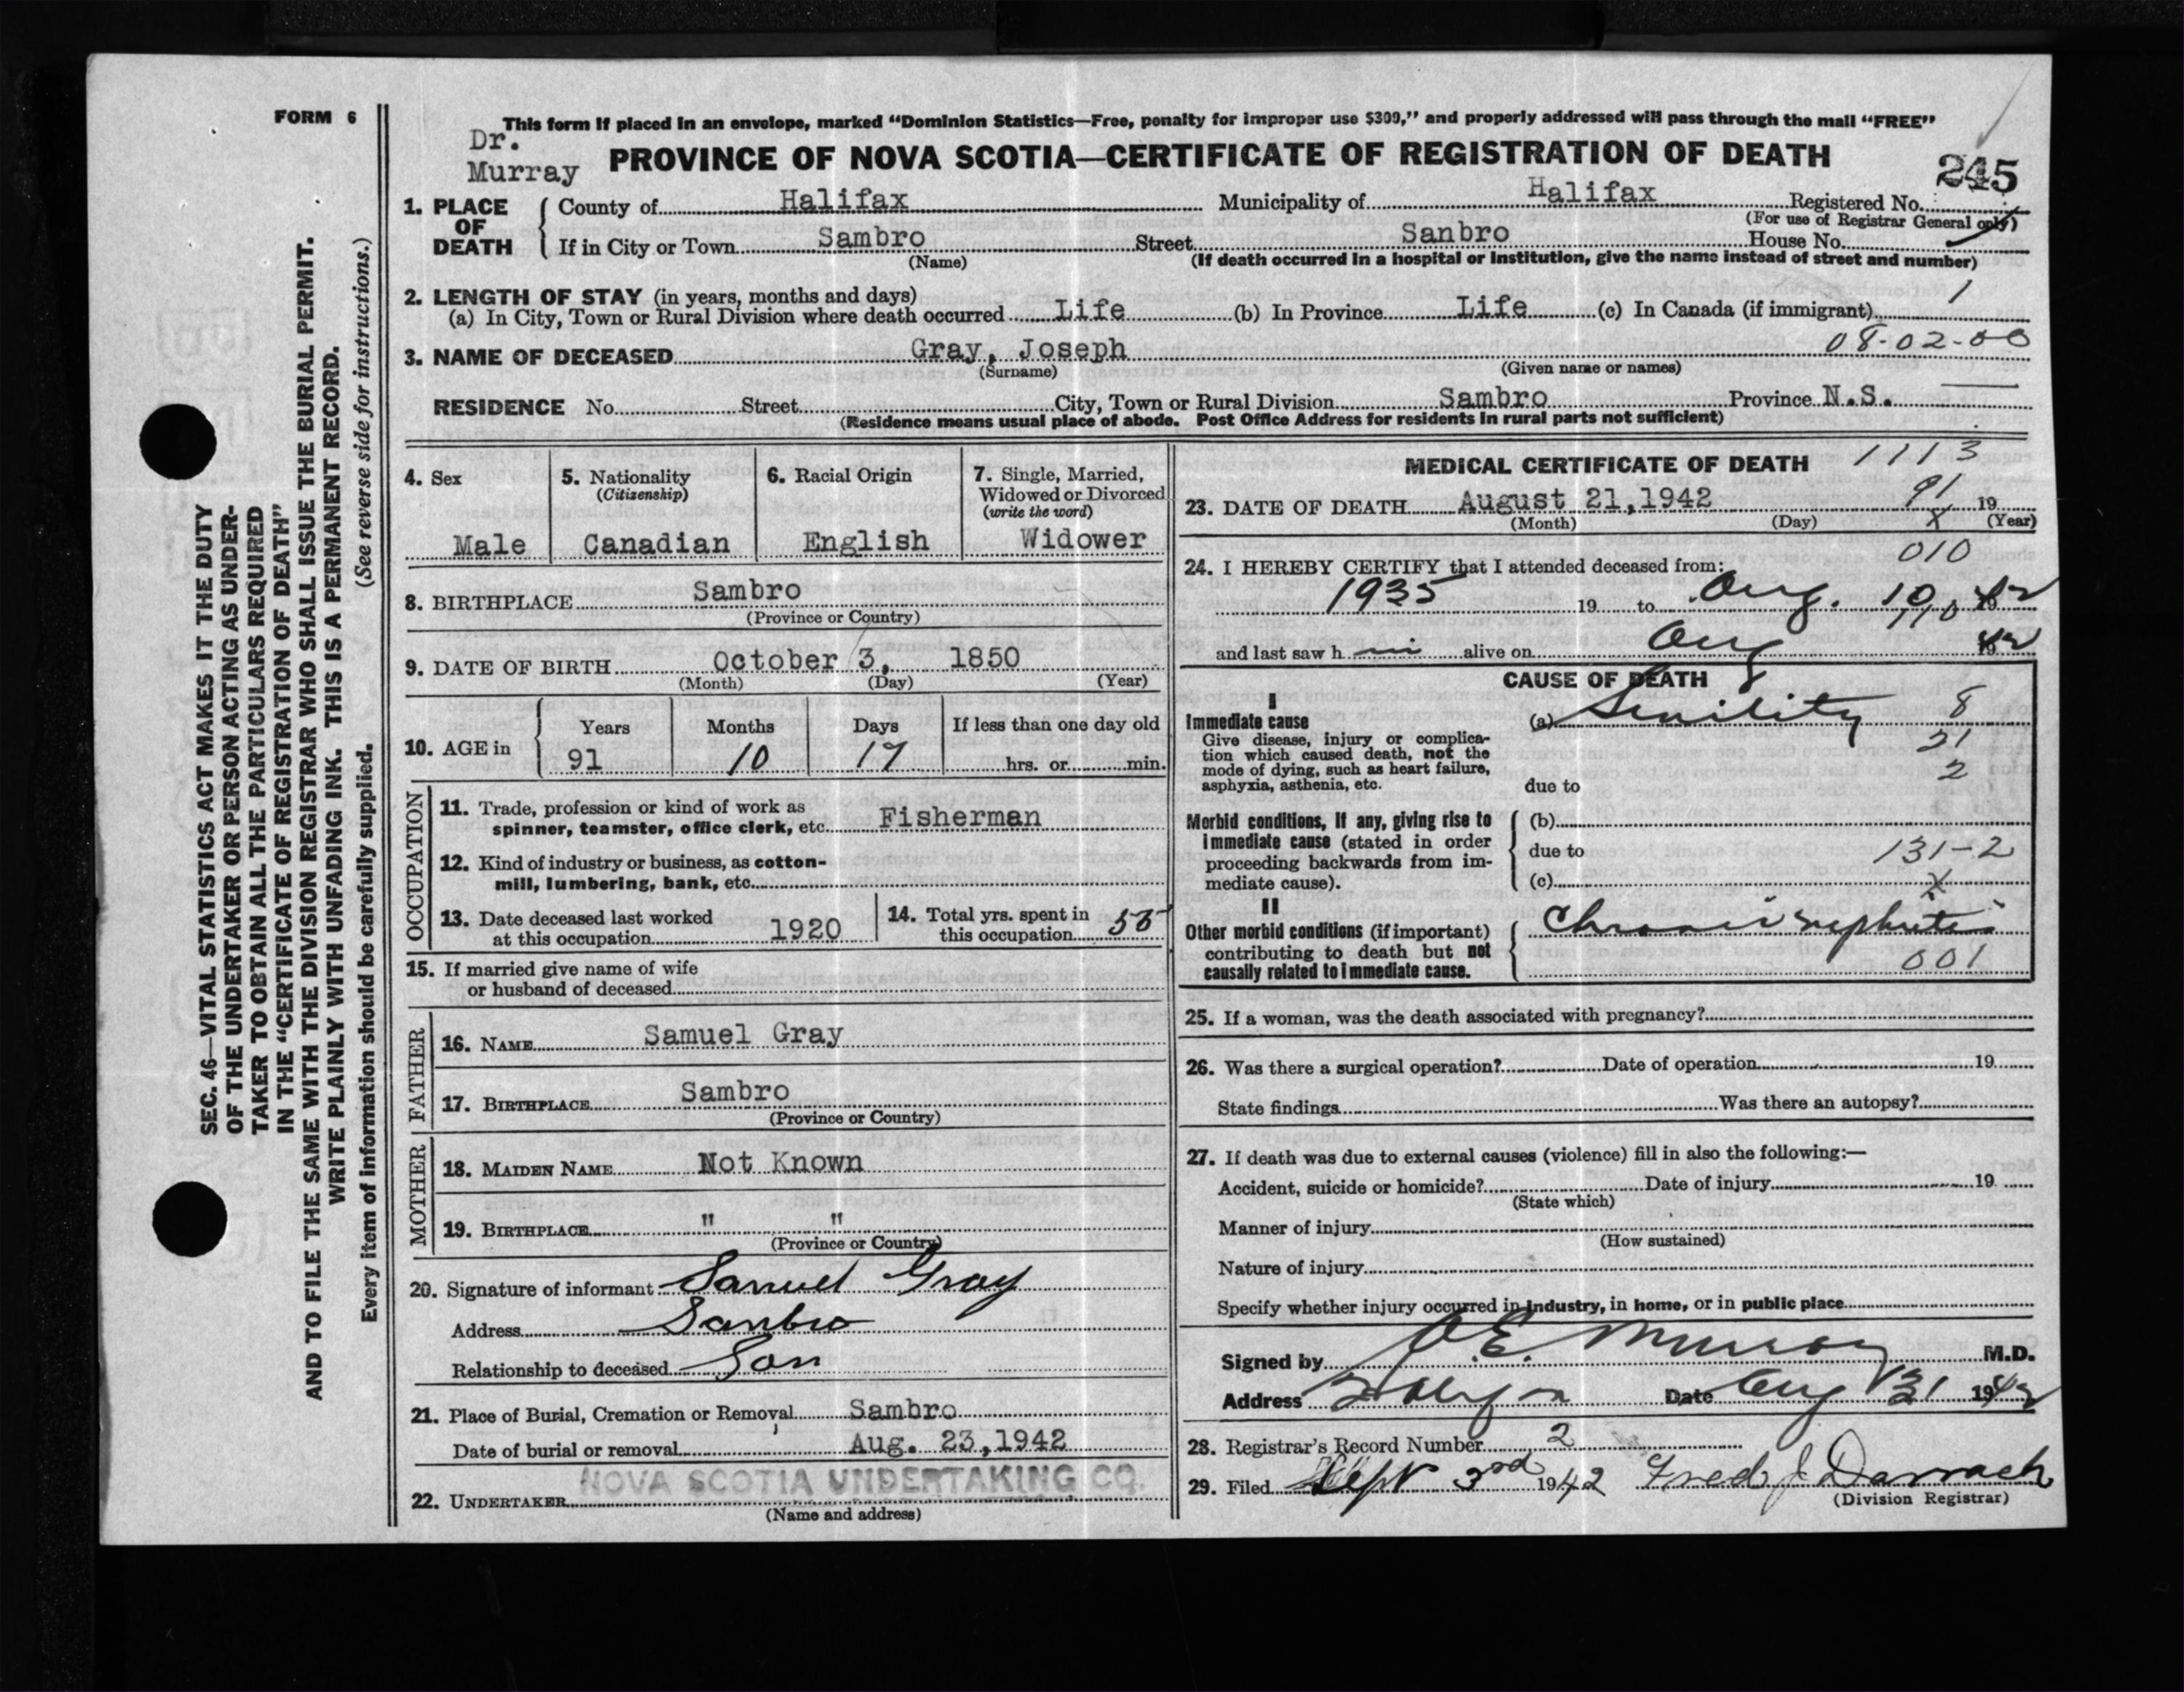 FORM 6
SEC. 46—VITAL STATISTICS ACT MAKES IT THE DUTY
OF THE UNDERTAKER OR PERSON ACTING AS UNDER-
TAKER TO OBTAIN ALL THE PARTICULARS REQUIRED
IN THE "CERTIFICATE OF REGISTRATION OF DEATH"
AND TO FILE THE SAME WITH THE DIVISION REGISTRAR WHO SHALL ISSUE THE BURIAL PERMIT.
WRITE PLAINLY WITH UNFADING INK. THIS IS A PERMANENT RECORD.
(See reverse side for instructions.)
Every item of information should be carefully supplied.
This form if placed in an envelope, marked "Dominion Statistics—Free, penalty for improper use $300," and properly addressed will pass through the mail "FREE"
Dr.
Murray
PROVINCE OF NOVA SCOTIA—CERTIFICATE OF REGISTRATION OF DEATH
245
1. PLACE OF DEATH
County of Halifax Municipality of Halifax Registered No.
(For use of Registrar General only)
If in City or Town Sambro Street Sanbro House No.
(Name) (If death occurred in a hospital or institution, give the name instead of street and number)
2. LENGTH OF STAY (in years, months and days)
(a) In City, Town or Rural Division where death occurred Life (b) In Province Life (c) In Canada (if immigrant) 1
08-02-00
3. NAME OF DECEASED Gray, Joseph
(Surname) (Given name or names)
RESIDENCE No. Street City, Town or Rural Division Sambro Province N.S.
(Residence means usual place of abode. Post Office Address for residents in rural parts not sufficient)
4. Sex
Male
5. Nationality
(Citizenship)
Canadian
6. Racial Origin
English
7. Single, Married,
Widowed or Divorced
(write the word)
Widower
8. BIRTHPLACE Sambro
(Province or Country)
9. DATE OF BIRTH October 3, 1850
(Month) (Day) (Year)
10. AGE in
Years Months Days If less than one day old
91 10 17 hrs. or min.
OCCUPATION
11. Trade, profession or kind of work as
spinner, teamster, office clerk, etc. Fisherman
12. Kind of industry or business, as cotton-
mill, lumbering, bank, etc.
13. Date deceased last worked
at this occupation 1920
14. Total yrs. spent in
this occupation 55
15. If married give name of wife
or husband of deceased
FATHER
16. NAME Samuel Gray
17. BIRTHPLACE Sambro
(Province or Country)
MOTHER
18. MAIDEN NAME Not Known
19. BIRTHPLACE " "
(Province or Country)
20. Signature of informant Samuel Gray
Address Sambro
Relationship to deceased Son
21. Place of Burial, Cremation or Removal Sambro
Date of burial or removal Aug. 23, 1942
NOVA SCOTIA UNDERTAKING CO.
22. UNDERTAKER
(Name and address)
MEDICAL CERTIFICATE OF DEATH 1113
91
23. DATE OF DEATH August 21, 1942 19
(Month) (Day) X (Year)
010
24. I HEREBY CERTIFY that I attended deceased from:
1935 19 to Aug. 10 1942
110
and last saw h im alive on Aug 1942
CAUSE OF DEATH
I
Immediate cause
Give disease, injury or complica-
tion which caused death, not the
mode of dying, such as heart failure,
asphyxia, asthenia, etc.
(a) Senility 8
21
2
due to
Morbid conditions, if any, giving rise to
immediate cause (stated in order
proceeding backwards from im-
mediate cause).
(b)
due to 131-2
(c) X
II
Other morbid conditions (if important)
contributing to death but not
causally related to immediate cause.
Chronic nephritis
001
25. If a woman, was the death associated with pregnancy?
26. Was there a surgical operation? Date of operation 19
State findings Was there an autopsy?
27. If death was due to external causes (violence) fill in also the following:—
Accident, suicide or homicide? Date of injury 19
(State which)
Manner of injury
(How sustained)
Nature of injury
Specify whether injury occurred in industry, in home, or in public place
Signed by J.E. Murray M.D.
Address Halifax Date Aug 31 1942
28. Registrar's Record Number 2
29. Filed Sept 3rd 1942 Fred J Darrach
(Division Registrar)